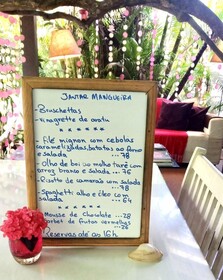 JANTAR MANGUEIRA
Bruschettas
Vinagrette de
• Filé mignon com cebolas
caramelizadas, batatas ao forno
e salada --- 78
• Olho de boi ao molho tarê com
arroz branco e salada --- 76
• Risotto de camarão com salada
--- 78
• Spaghetti alho e óleo com
salada --- 64
Mousse de chocolate --- 28
Sorbet de frutas vermelhas
26
Reservas até as 16h